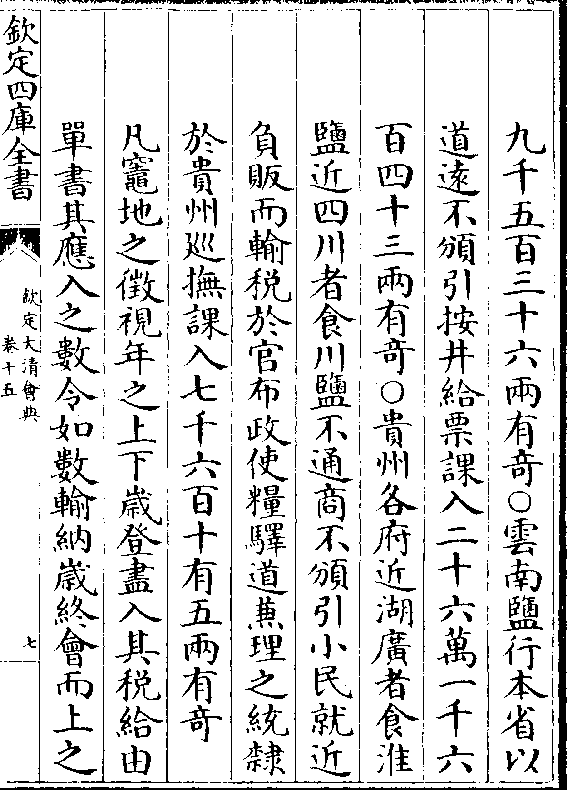 九千五百三十六兩有竒○雲南鹽行本省以
道逺不頒引按井給票課入二十六萬一千六
百四十三兩有竒○貴州各府近湖廣者食淮
鹽近四川者食川鹽不通商不頒引小民就近
負販而輸税於官布政使糧驛道兼理之統隸
於貴州廵撫課入七千六百十有五兩有竒
凡竈地之徴視年之上下歳登盡入其税給由
單書其應入之數令如數輸納歳終會而上之
欽定四庫全書
欽定大清會典
卷十五
七